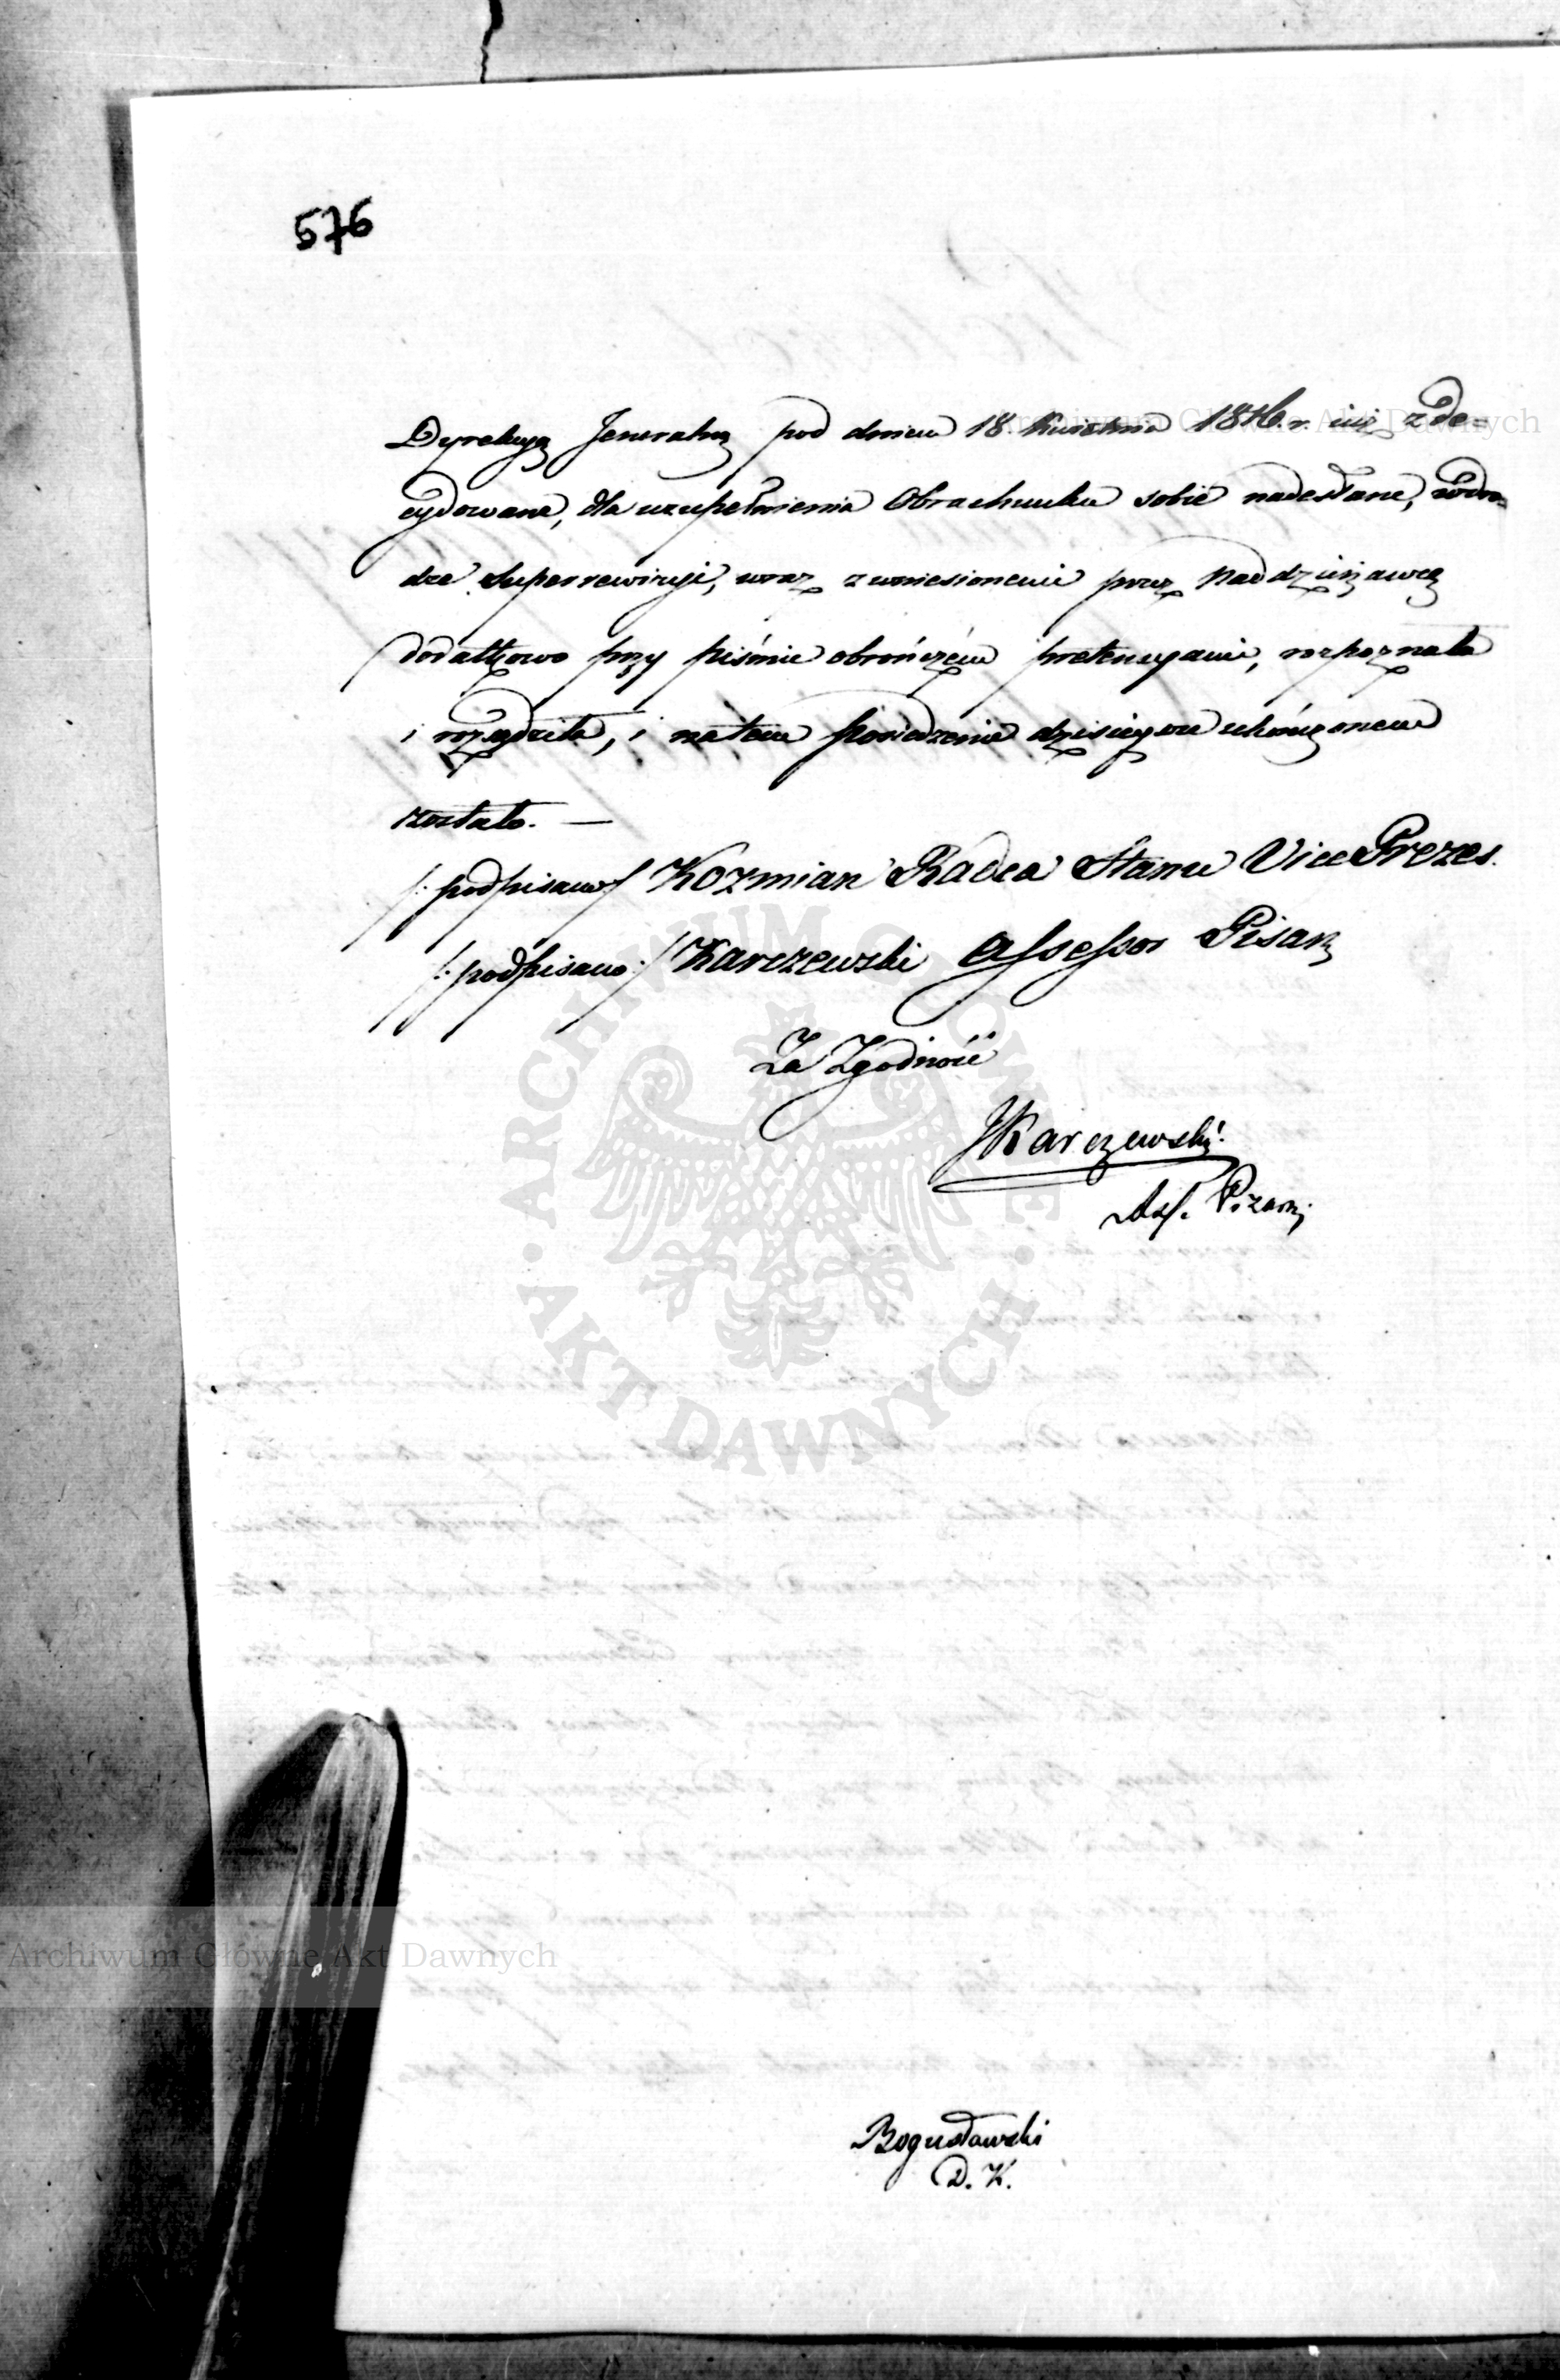 576
Dyrekcyą Jeneralną pod dniem 18. Kwietnia 1816. r. już zde=
cydowane, dla uzupełnienia Obrachunku sobie nadesłane, w dro=
dze Superrewizyi, wraz z wniesionemi przez Naddzierżawcę
dodatkowo przy piśmie obrończém pretensyami, rozpoznała
i rozsądziła, i na tem Posiedzenie dzisieysze ukończonem
zostało. —
/: podpisano :/ Kozmian Radca Stanu Vice Prezes.
/: podpisano :/ Karczewski Assessor Pisarz
Za Zgodność
JKarczewski.
Ass. Pisarz
Bogusławski
D. K.
ARCHIWUM GŁÓWNE · AKT DAWNYCH ·
Archiwum Główne Akt Dawnych
Archiwum Główne Akt Dawnych